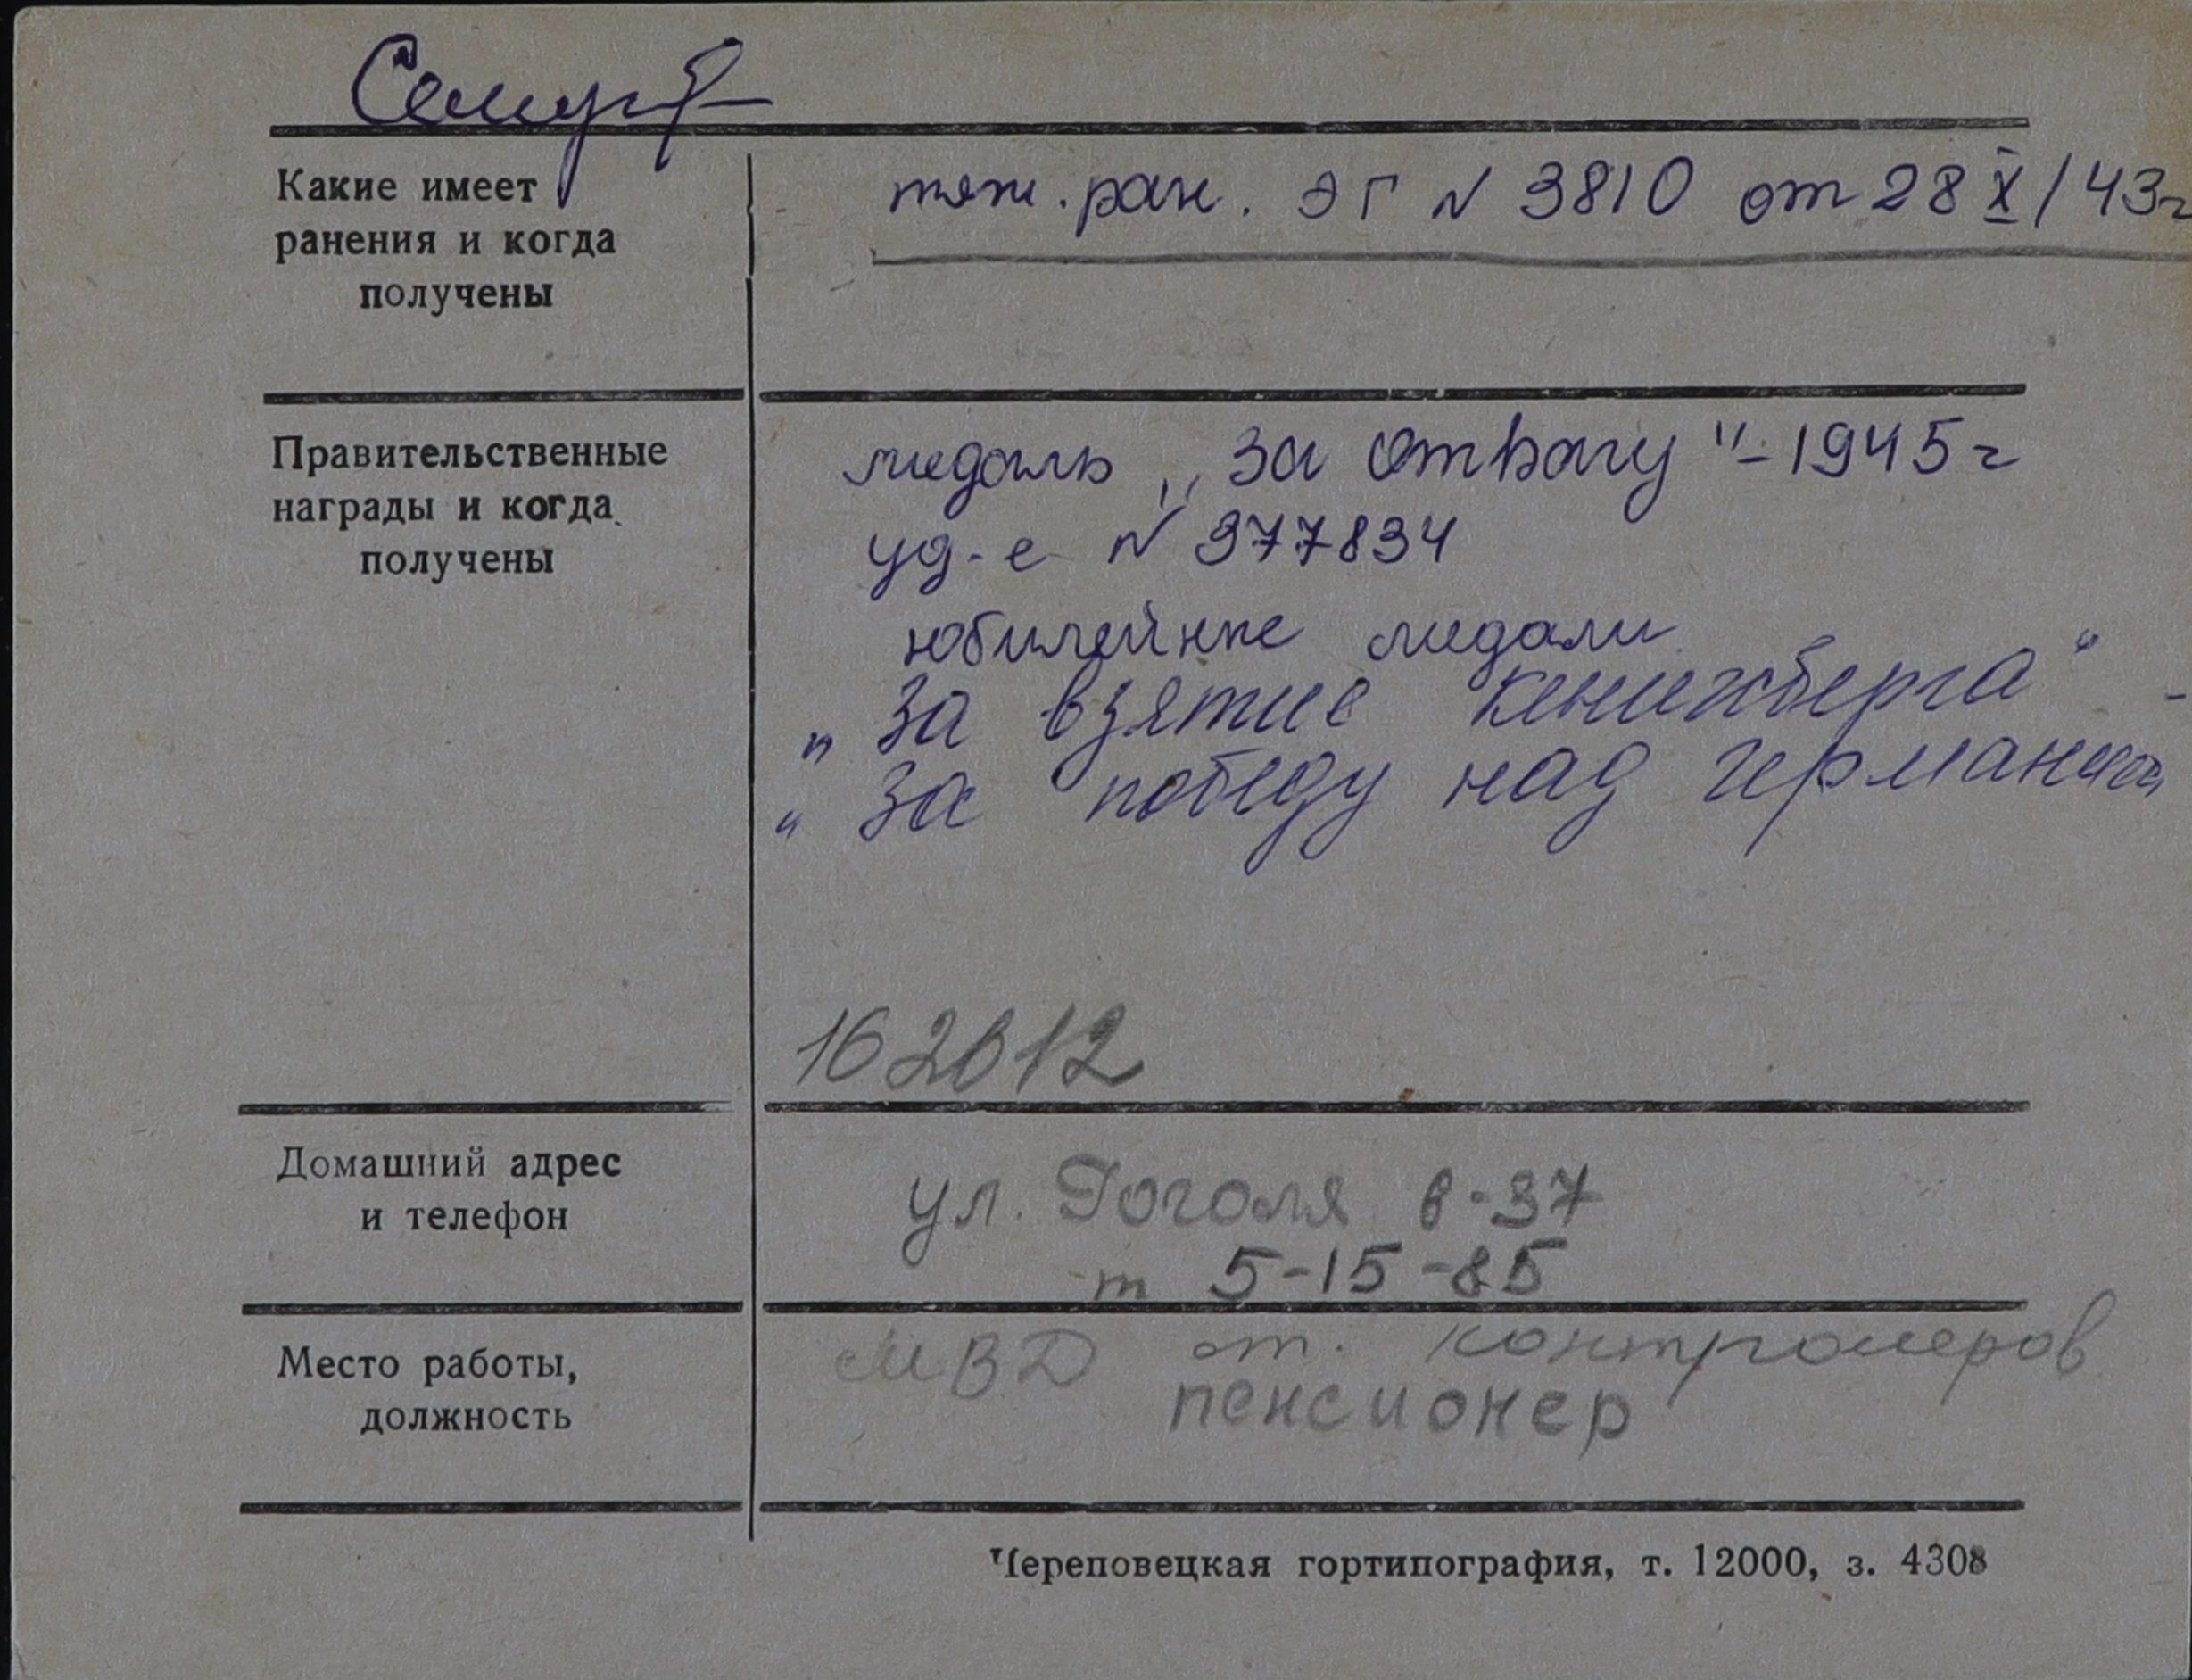 Какие имеет
ранения и когда
получены
тяж. ран. ЭГ N 3810 от 28 X/43г
Правительственные
награды и когда
получены
медаль „За отвагу"-1945г
уд-е N 377834
юбилейные медали
„За взятие Кенигсберга" -
„За победу над Германией
162612
Домашний адрес
и телефон
ул. Гоголя 8-37
т 5-15-85
Место работы,
должность
МВД от. контролеров
пенсионер
Череповецкая гортипография, т. 12000, з. 4308